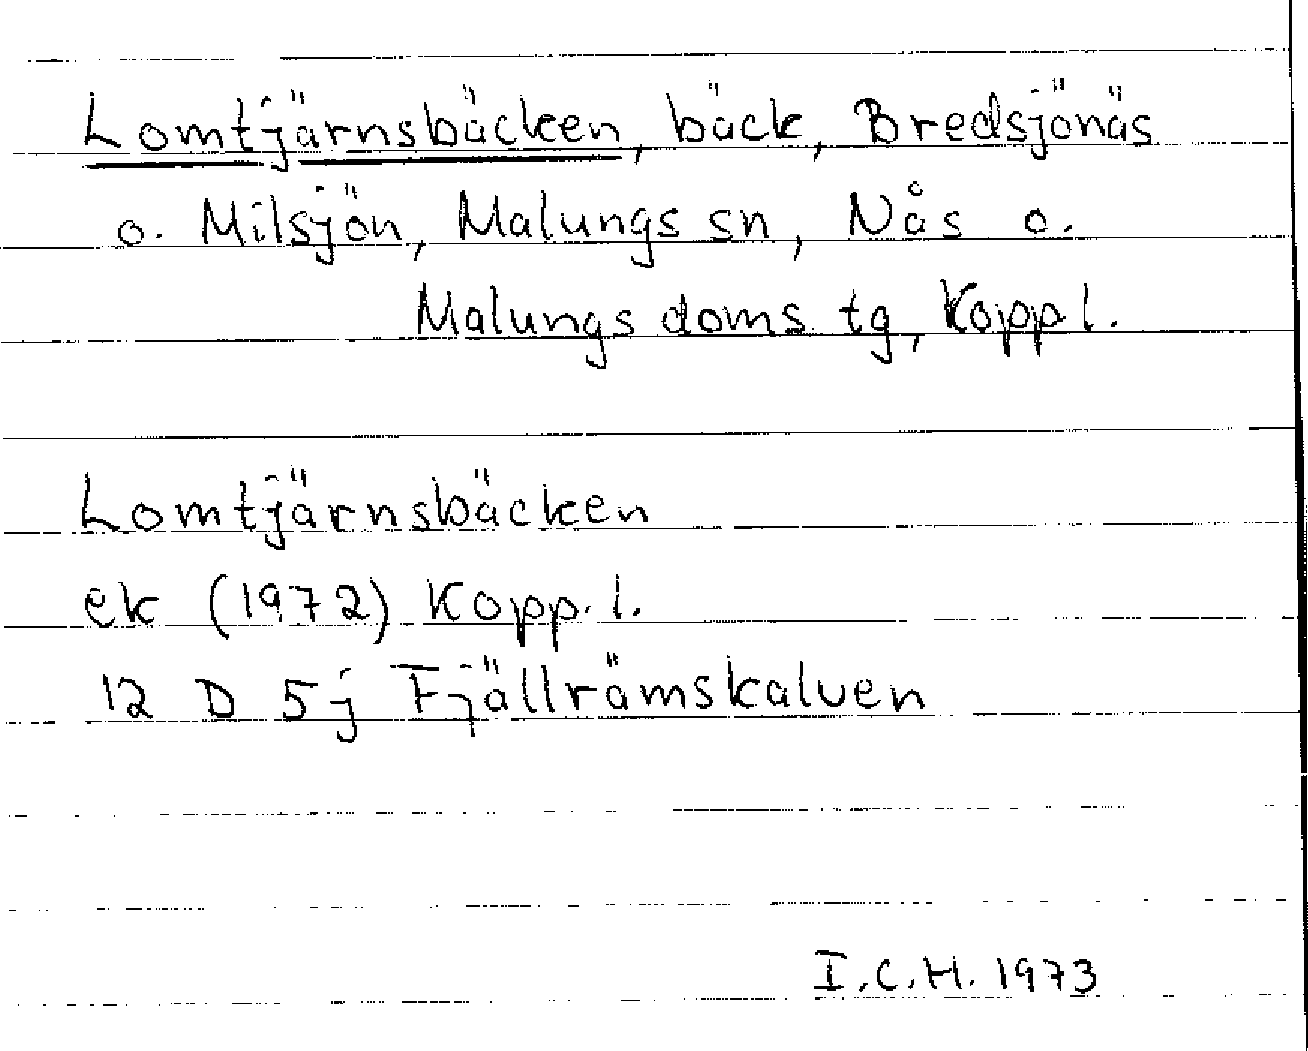 Lomtjärnsbäcken, bäck, Bredsjönäs
o. Milsjön, Malungs sn, Nås o.
Malungs doms. tg, Koppl.
Lomtjärnsbäcken
ek (1972) Kopp. l.
12 D 5j Fjällrämskalven
I.C.H. 1973